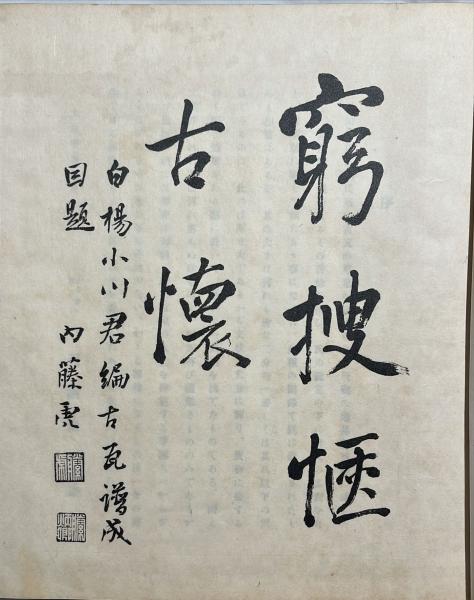 窮搜愜
古懷
白楊小川君編古瓦譜成
因題 内藤虎